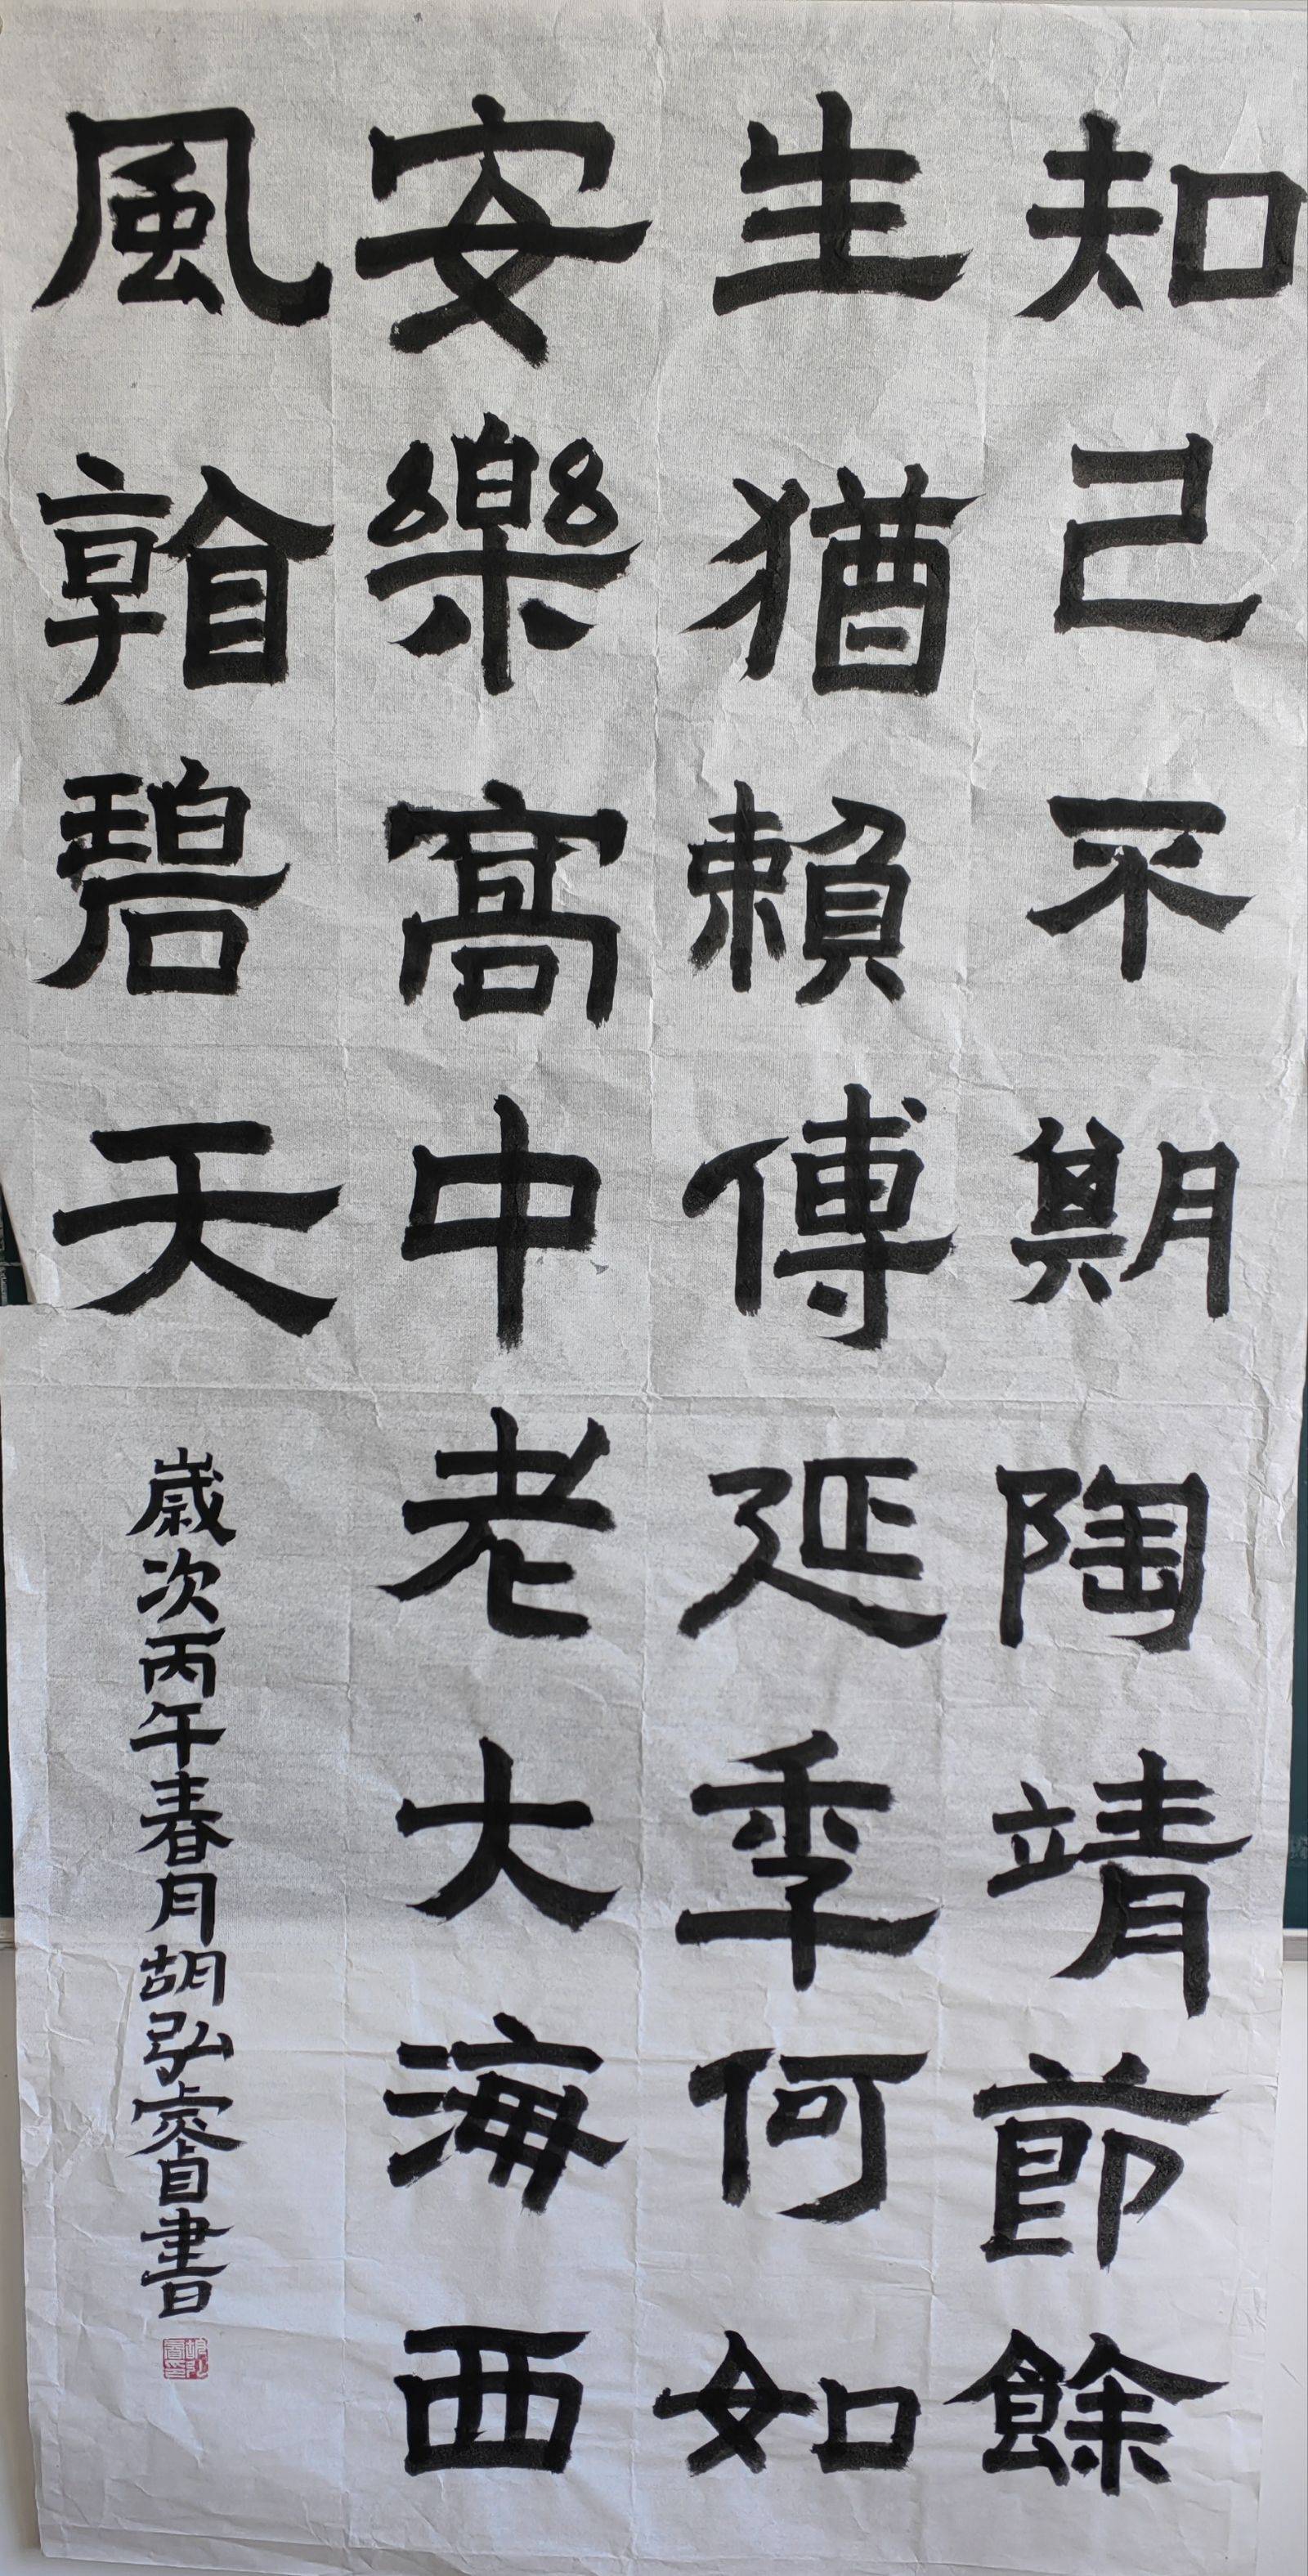 知己不期陶靖節餘
生猶賴傅延季何如
安樂窩中老大海西
風碧天
歲次丙午春月胡弘睿書